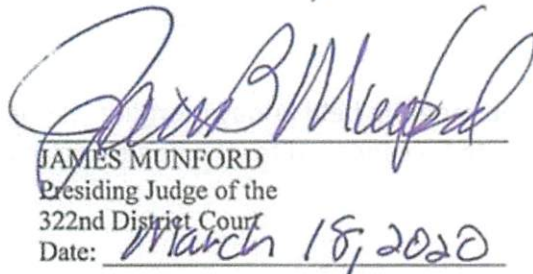 James B Munford
JAMES MUNFORD
Presiding Judge of the
322nd District Court
Date: March 18, 2020